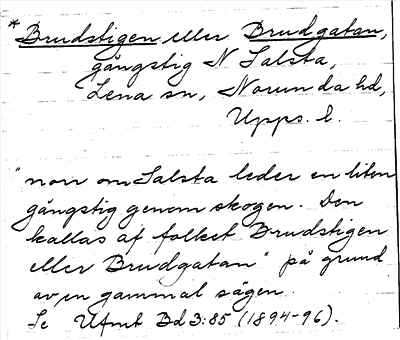 * Brudstigen eller Brudgatan,
gångstig N Salsta,
Lena sn, Norunda hd,
Upps. l.
"norr om Salsta leder en liten
gångstig genom skogen. Den
kallas af folket Brudstigen
eller Brudgatan" på grund
av en gammal sägen.
Se Ufmt Bd 3:85 (1894-96).